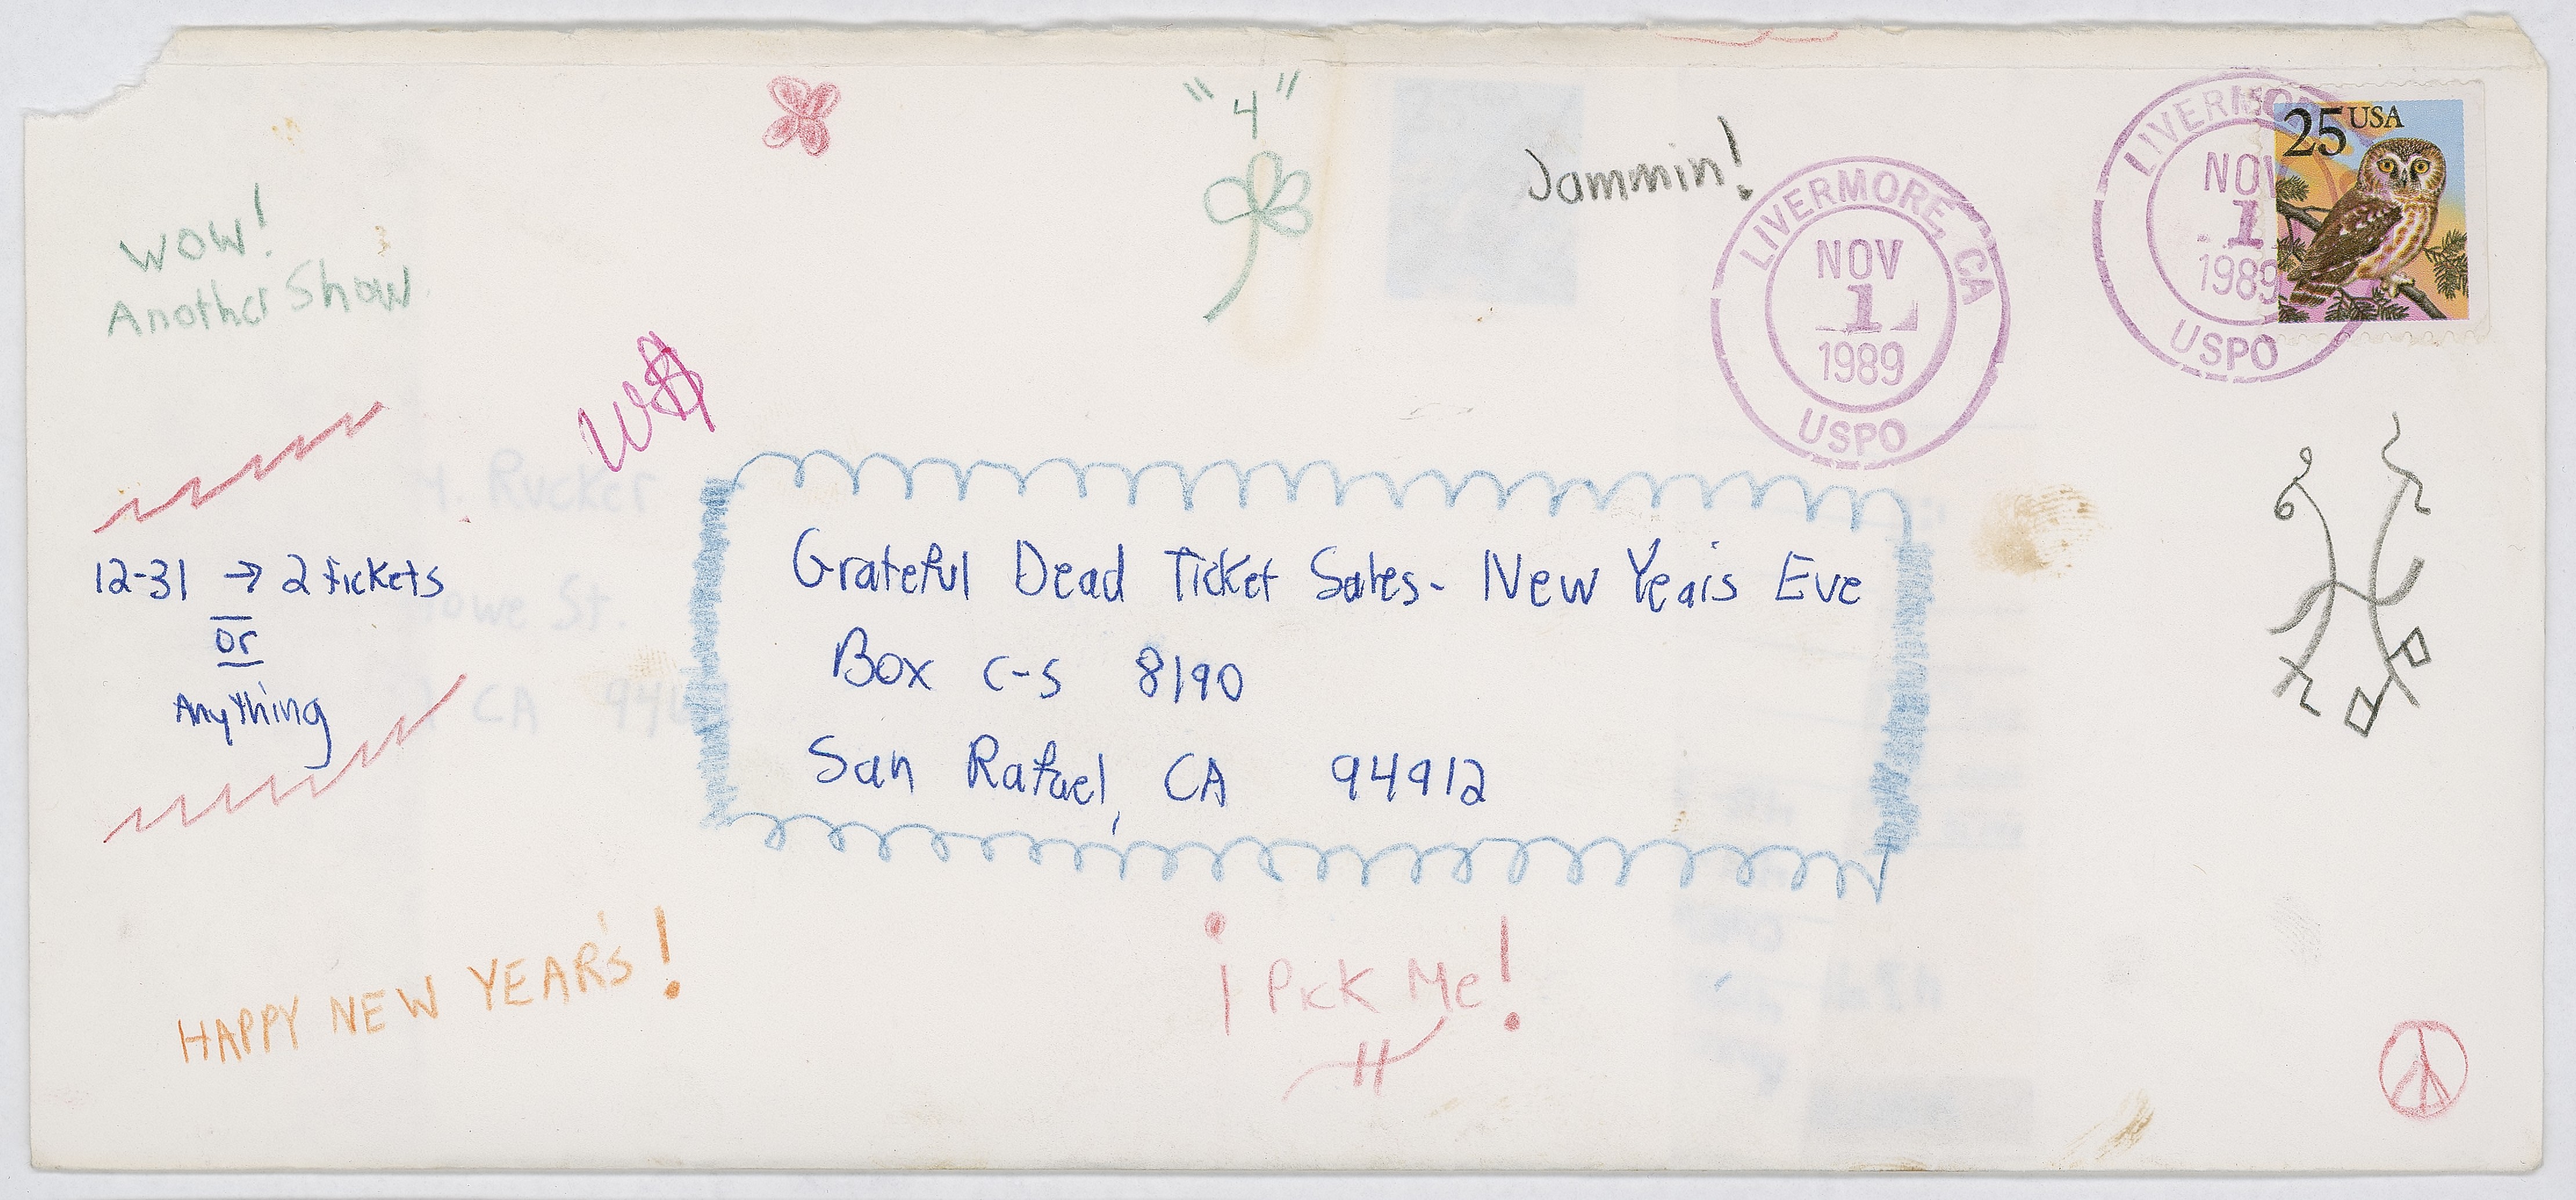 "4"
WOW!
Another Show
Jammin!
LIVERMORE, CA
NOV
1
1989
USPO
LIVERMORE
NOV
1
1989
USPO
25 USA
12-31 → 2 tickets
or
Anything
Grateful Dead Ticket Sales- New Years Eve
Box C-S 8190
San Rafael, CA 94912
HAPPY NEW YEAR'S!
¡ Pick Me!
Rucker
owe St.
CA 94